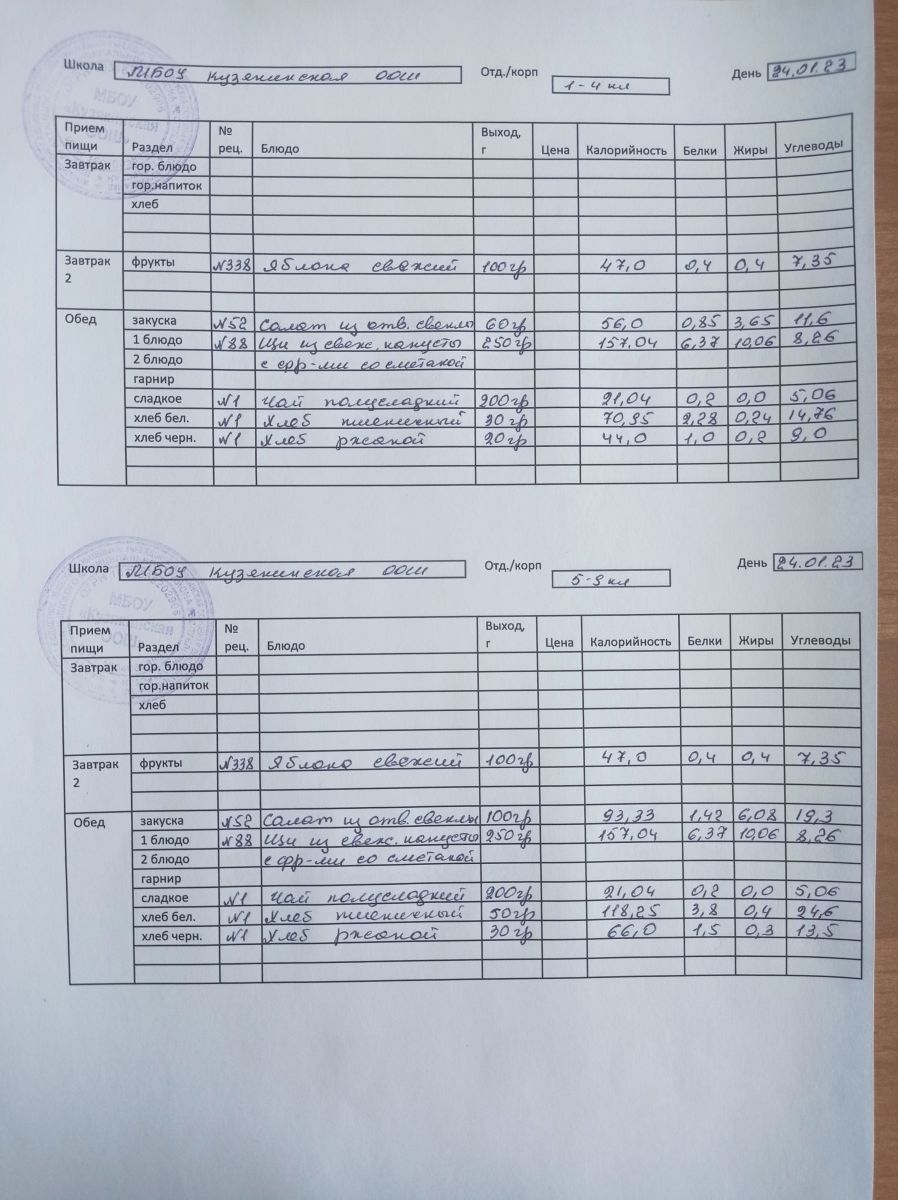 Школа МБОУ Кузякинская ООШ Отд./корп 1-4 кл День 24.01.23
Прием пищи Раздел № рец. Блюдо Выход, г Цена Калорийность Белки Жиры Углеводы
Завтрак гор. блюдо
гор.напиток
хлеб
Завтрак 2 фрукты №338 Яблоко свежий 100гр 47,0 0,4 0,4 7,35
Обед закуска №52 Салат из отв. свеклы 60гр 56,0 0,85 3,65 11,6
1 блюдо №88 Щи из свеж. капусты 250гр 157,04 6,37 10,06 8,26
2 блюдо с фр-ми со сметаной
гарнир
сладкое №1 Чай полусладкий 200гр 21,04 0,2 0,0 5,06
хлеб бел. №1 Хлеб пшеничный 30гр 70,95 2,28 0,24 14,76
хлеб черн. №1 Хлеб ржаной 20гр 44,0 1,0 0,2 9,0
Школа МБОУ Кузякинская ООШ Отд./корп 5-9 кл День 24.01.23
Прием пищи Раздел № рец. Блюдо Выход, г Цена Калорийность Белки Жиры Углеводы
Завтрак гор. блюдо
гор.напиток
хлеб
Завтрак 2 фрукты №338 Яблоко свежий 100гр 47,0 0,4 0,4 7,35
Обед закуска №52 Салат из отв. свеклы 100гр 93,33 1,42 6,08 19,3
1 блюдо №88 Щи из свеж. капусты 250гр 157,04 6,37 10,06 8,26
2 блюдо с фр-ми со сметаной
гарнир
сладкое №1 Чай полусладкий 200гр 21,04 0,2 0,0 5,06
хлеб бел. №1 Хлеб пшеничный 50гр 118,25 3,8 0,4 24,6
хлеб черн. №1 Хлеб ржаной 30гр 66,0 1,5 0,3 13,5